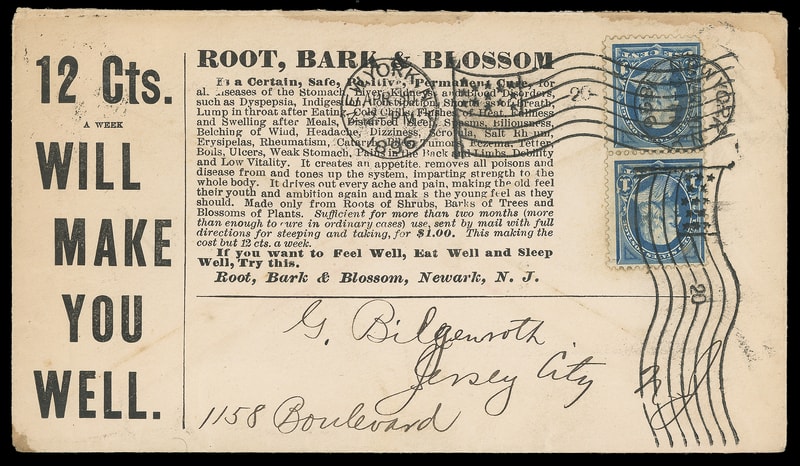 12 Cts.
A WEEK
WILL
MAKE
YOU
WELL.
ROOT, BARK & BLOSSOM
Is a Certain, Safe, Positive, Permanent Cure, for
all Diseases of the Stomach, Liver, Kidneys, and Blood Disorders,
such as Dyspepsia, Indigestion, Constipation, Shortness of Breath,
Lump in throat after Eating, Cold Chills, Flushes of Heat, Fullness
and Swelling after Meals, Disturbed Sleep, Spasms, Biliousness,
Belching of Wind, Headache, Dizziness, Scrofula, Salt Rheum,
Erysipelas, Rheumatism, Catarrh, Humors, Eczema, Tetter,
Boils, Ulcers, Weak Stomach, Pains in the Back and Limbs, Debility
and Low Vitality. It creates an appetite, removes all poisons and
disease from and tones up the system, imparting strength to the
whole body. It drives out every ache and pain, making the old feel
their youth and ambition again and makes the young feel as they
should. Made only from Roots of Shrubs, Barks of Trees and
Blossoms of Plants. Sufficient for more than two months (more
than enough to cure in ordinary cases) use, sent by mail with full
directions for steeping and taking, for $1.00. This making the
cost but 12 cts. a week.
If you want to Feel Well, Eat Well and Sleep
Well, Try this.
Root, Bark & Blossom, Newark, N. J.
NEW YORK
20
NEW YORK
20
G. Bilgenroth
Jersey City
N J
1158 Boulevard